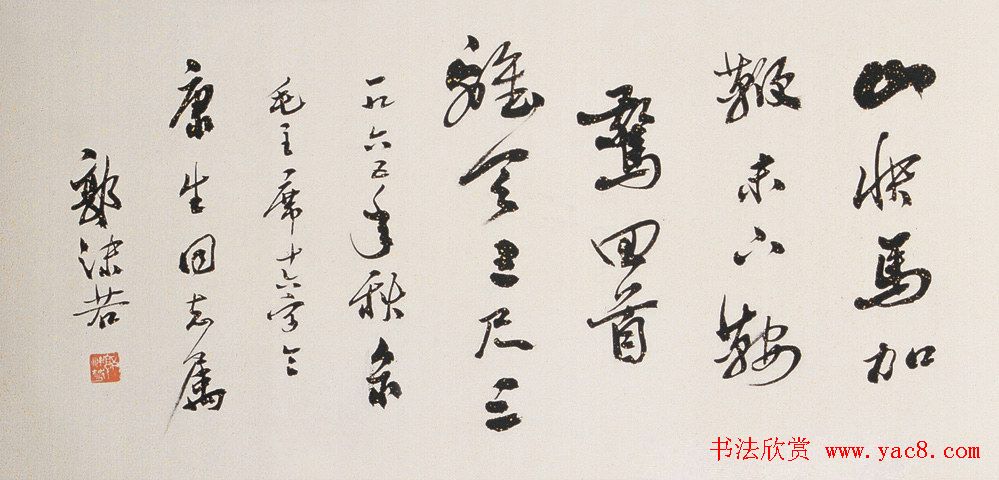 山快馬加
鞭未下鞍
驚回首
離天三尺三
一九六五年秋录
毛主席十六字令
康生同志属
郭沫若
书法欣赏 www.yac8.com